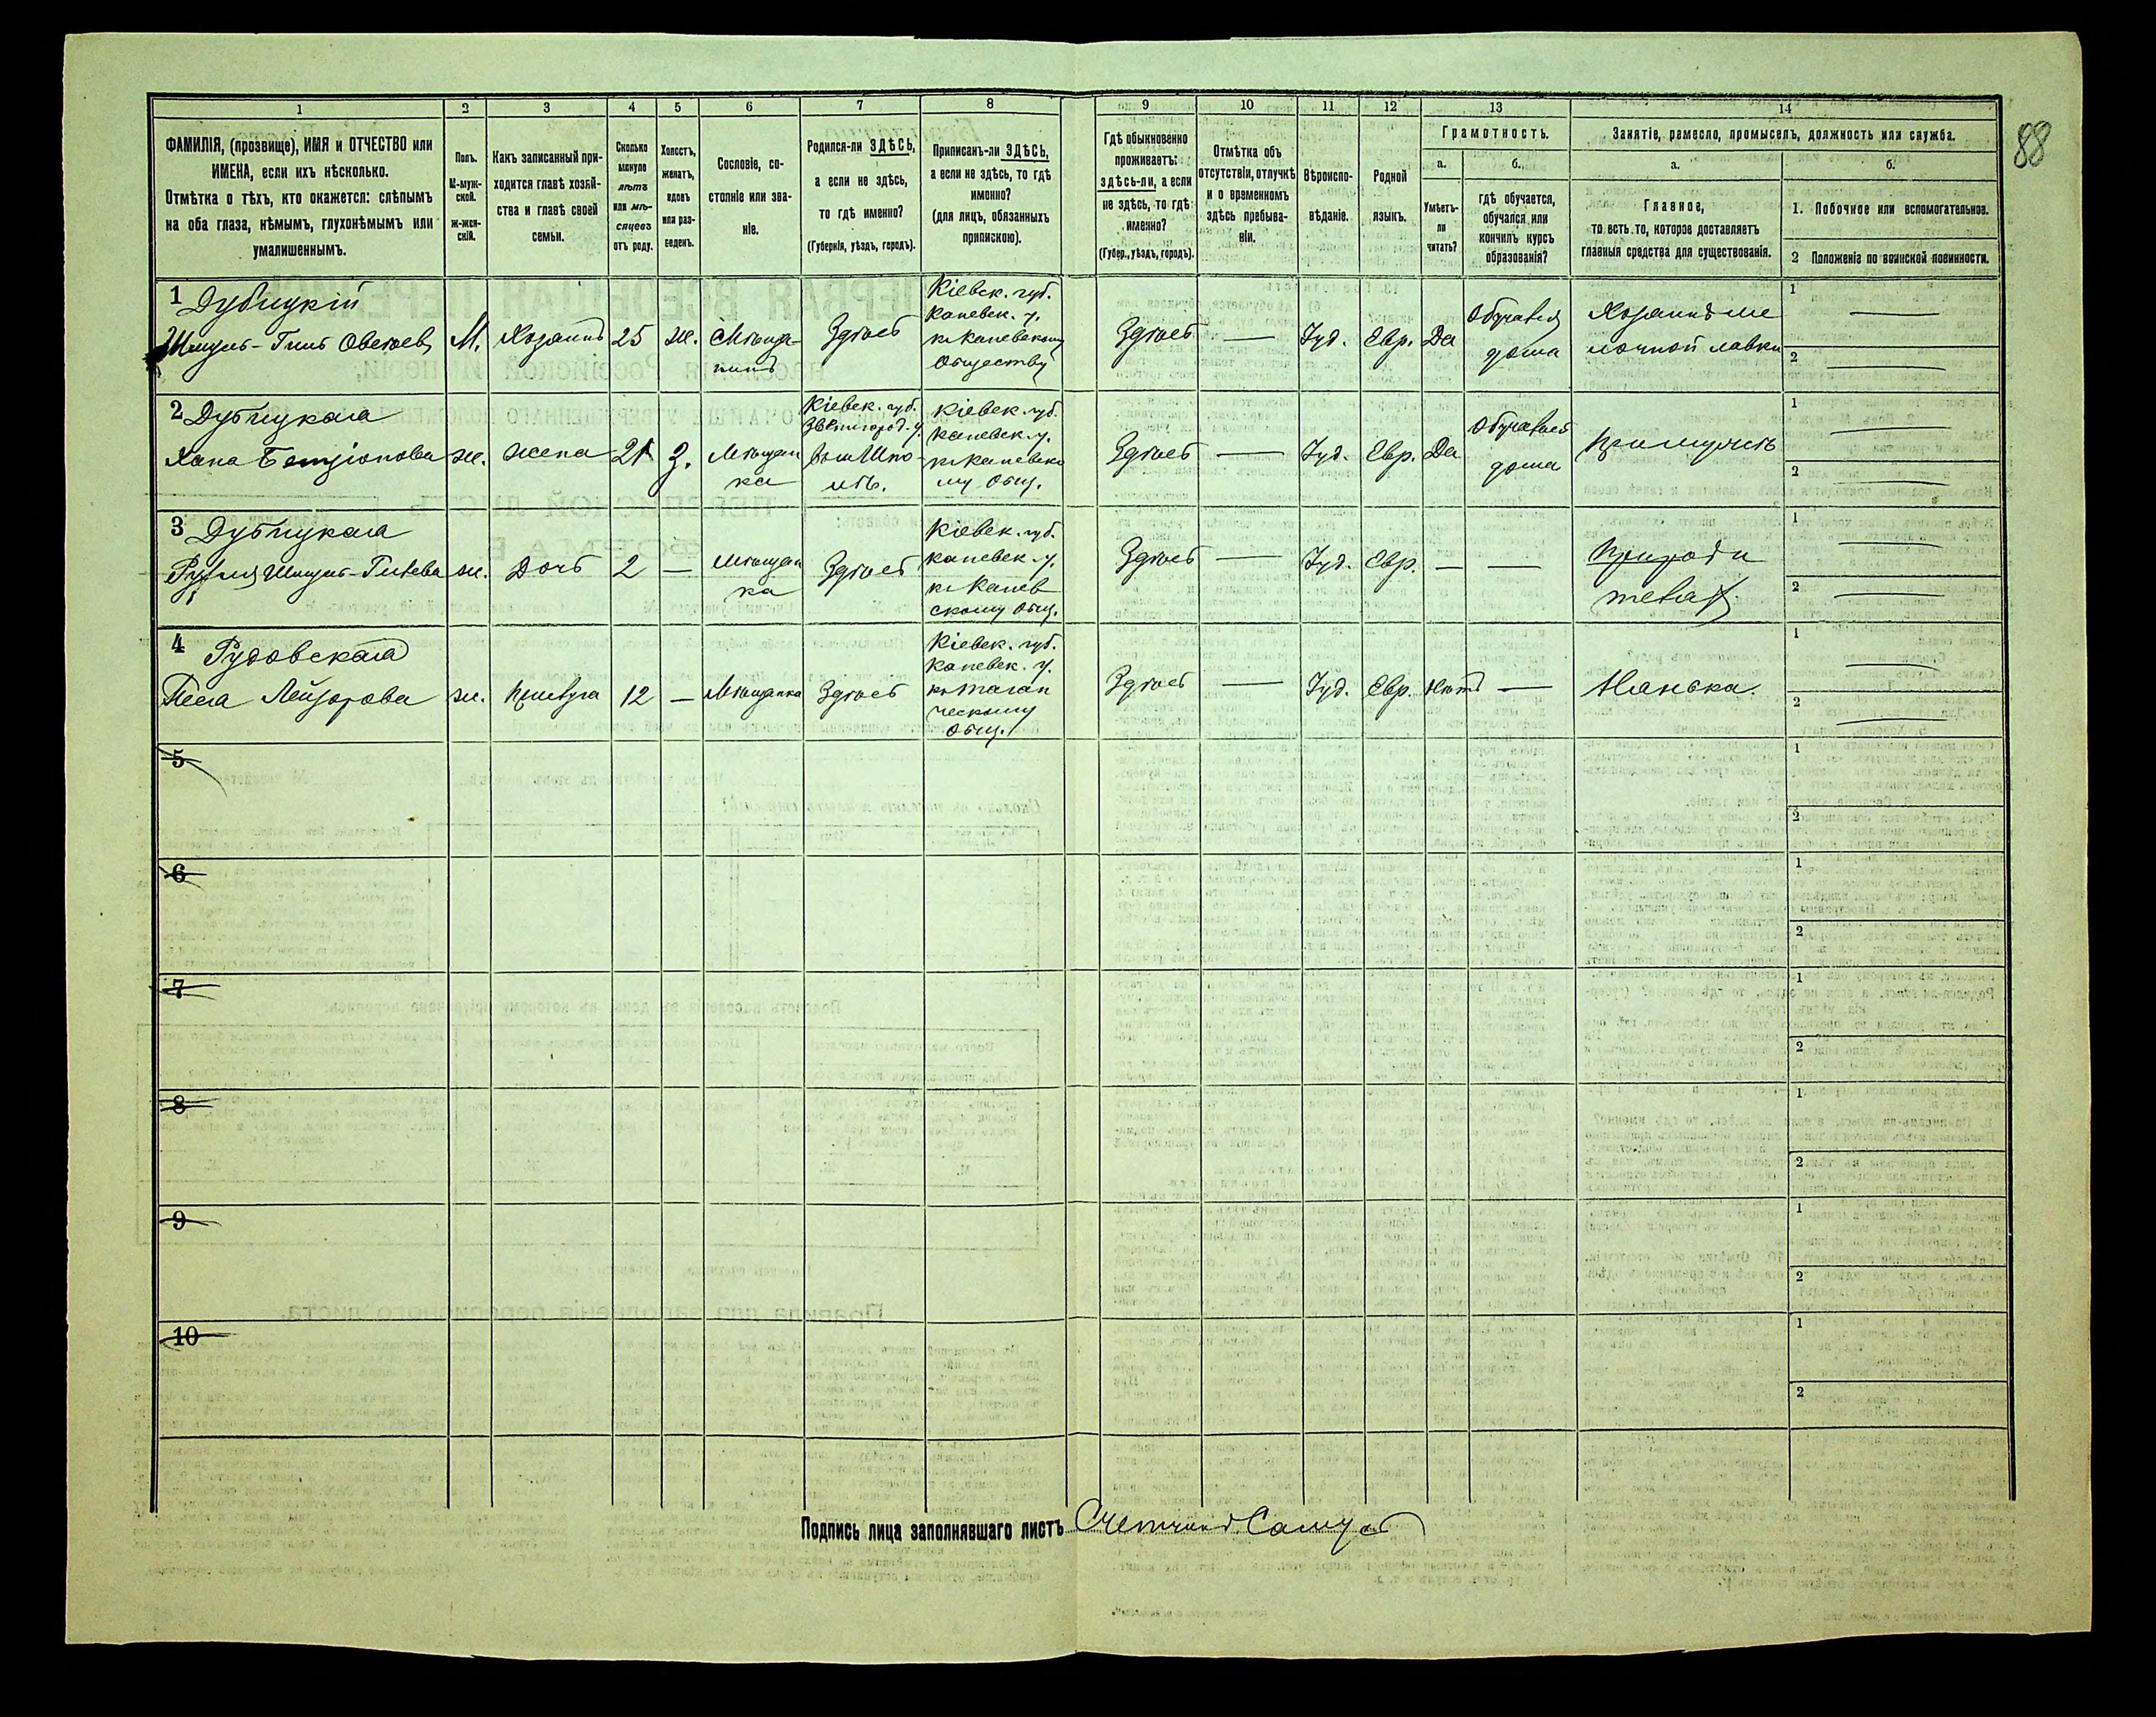 88
1 2 3 4 5 6 7 8 9 10 11 12 13 14
ФАМИЛІЯ, (прозвище), ИМЯ и ОТЧЕСТВО или
ИМЕНА, если ихъ нѣсколько.
Отмѣтка о тѣхъ, кто окажется: слѣпымъ
на оба глаза, нѣмымъ, глухонѣмымъ или
умалишеннымъ.
Полъ.
М-муж-
ской.
ж-жен-
скій.
Какъ записанный при-
ходится главѣ хозяй-
ства и главѣ своей
семьи.
Сколько
минуло
лѣтъ
или мѣ-
сяцевъ
отъ роду.
Холостъ,
женатъ,
вдовъ
или раз-
веденъ.
Сословіе, со-
стояніе или зва-
ніе.
Родился-ли ЗДѢСЬ,
а если не здѣсь,
то гдѣ именно?
(Губернія, уѣздъ, городъ).
Приписанъ-ли ЗДѢСЬ,
а если не здѣсь, то гдѣ
именно?
(для лицъ, обязанныхъ
припискою).
Гдѣ обыкновенно
проживаетъ:
здѣсь-ли, а если
не здѣсь, то гдѣ
именно?
(Губер., уѣздъ, городъ).
Отмѣтка объ
отсутствіи, отлучкѣ
и о временномъ
здѣсь пребыва-
ніи.
Вѣроиспо-
вѣданіе.
Родной
языкъ.
Грамотность.
а.
Умѣетъ-
ли
читать?
б.
гдѣ обучается,
обучался или
кончилъ курсъ
образованія?
Занятіе, ремесло, промыселъ, должность или служба.
а.
Главное,
то есть то, которое доставляетъ
главныя средства для существованія.
б.
1. Побочное или вспомогательное.
2 Положеніе по воинской повинности.
1 Дубицкій
Шмуль-Гиль Овсеев
М.
Хозяинъ
25
ж.
Мѣща-
нинъ
Здѣсь
Кіевск. губ.
Каневск. у.
къ Каневскому
Обществу
Здѣсь
—
Іуд.
Евр.
Да
Обучался
дома
Хозяинъ ме
лочной лавки
1 —
2 —
2 Дубицкая
Хана
ж.
жена
21
З.
Мѣщан
ка
Кіевск. губ.
Звенигород. у.
Шпо-
Кіевск. губ.
Каневск. у.
къ Каневско
му Общ.
Здѣсь
—
Іуд.
Евр.
Да
Обучалась
дома
При мужѣ
1 —
2 —
3 Дубицкая
Шмуль-Гилева
ж.
Дочь
2
—
Мѣщан
ка
Здѣсь
Кіевск. губ.
Каневск. у.
къ Канев
скому Общ.
Здѣсь
—
Іуд.
Евр.
—
—
При роди
теляхъ
1 —
2 —
4 Рудовская
Песа Лейзорова
ж.
Прислуга
12
—
Мѣщанка
Здѣсь
Кіевск. губ.
Каневск. у.
къ Таган
ческому
Общ.
Здѣсь
—
Іуд.
Евр.
Нѣтъ
—
Нянька.
1 —
2 —
5
1
2
6
1
2
7
1
2
8
1
2
9
1
2
10
1
2
Подпись лица заполнявшаго листъ Счетчикъ